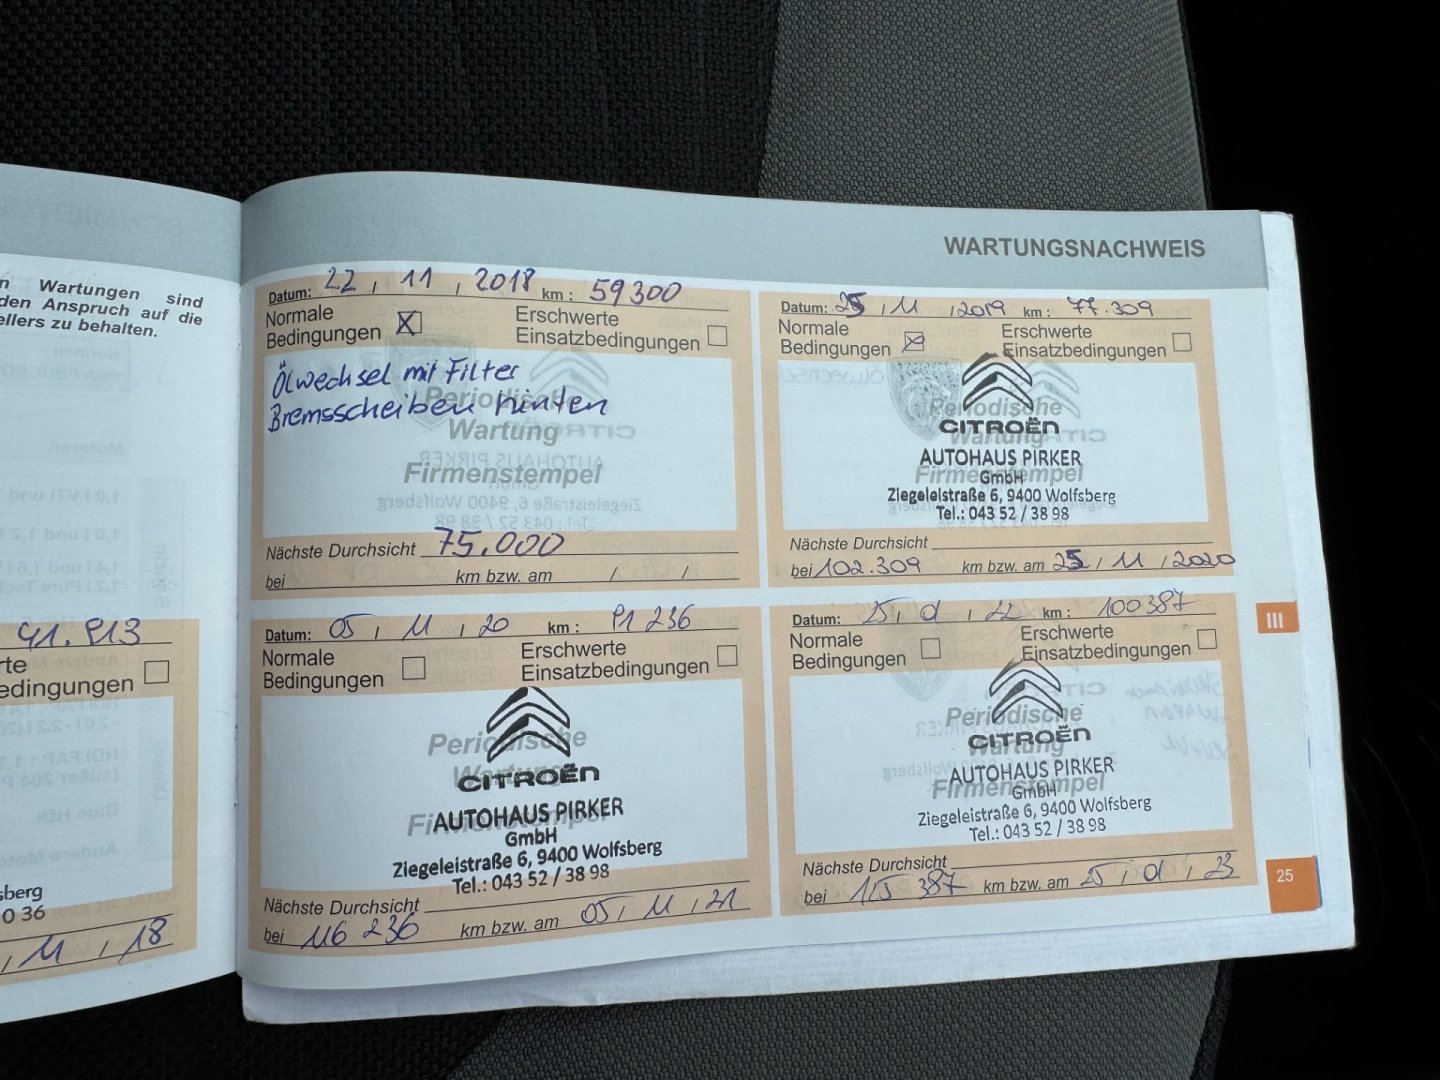 n Wartungen sind
den Anspruch auf die
ellers zu behalten.
41.913
rte
edingungen
sberg
0 36
, 11 , 18
WARTUNGSNACHWEIS
Datum: 22 , 11 , 2018 km : 59300
Normale
Bedingungen X
Erschwerte
Einsatzbedingungen
Ölwechsel mit Filter
Bremsscheiben hinten
Periodische
Wartung
Firmenstempel
Nächste Durchsicht 75.000
bei km bzw. am / /
Datum: 25 , 11 , 2019 km : 77.309
Normale
Bedingungen X
Erschwerte
Einsatzbedingungen
Periodische
Wartung
Firmenstempel
CITROËN
AUTOHAUS PIRKER
GmbH
Ziegeleistraße 6, 9400 Wolfsberg
Tel.: 043 52 / 38 98
Nächste Durchsicht
bei 102.309 km bzw. am 25 , 11 , 2020
Datum: 05 , 11 , 20 km : 91 236
Normale
Bedingungen
Erschwerte
Einsatzbedingungen
Periodische
Wartung
Firmenstempel
CITROËN
AUTOHAUS PIRKER
GmbH
Ziegeleistraße 6, 9400 Wolfsberg
Tel.: 043 52 / 38 98
Nächste Durchsicht
bei 116 236 km bzw. am 05 , 11 , 21
Datum: 25 , 01 , 22 km : 100387
Normale
Bedingungen
Erschwerte
Einsatzbedingungen
Periodische
Wartung
Firmenstempel
CITROËN
AUTOHAUS PIRKER
GmbH
Ziegeleistraße 6, 9400 Wolfsberg
Tel.: 043 52 / 38 98
Nächste Durchsicht
bei 125 387 km bzw. am 25 , 01 , 23
III
25